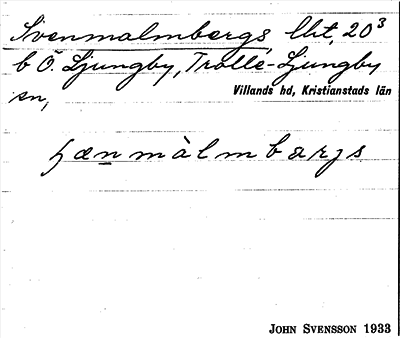 Svenmalmbergs lht, 20³
b Ö. Ljungby, Trolle-Ljungby
sn, Villands hd, Kristianstads län
hænmàlmbarjs
JOHN SVENSSON 1933